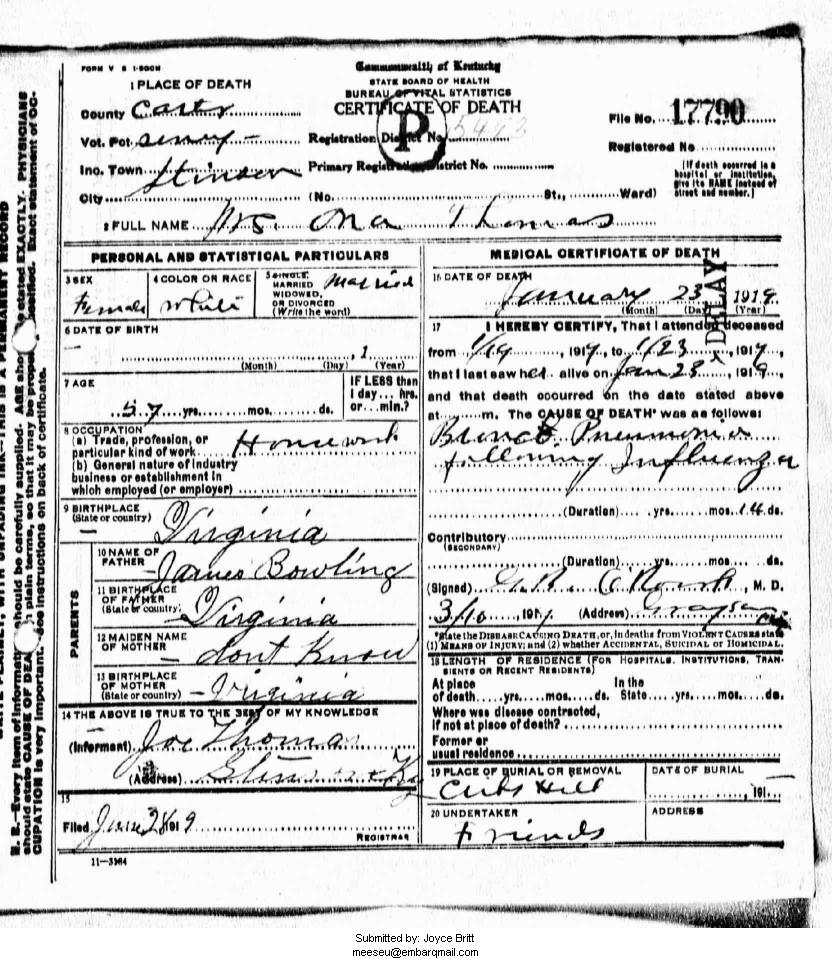 FORM V S 1-500M
Commonwealth of Kentucky
STATE BOARD OF HEALTH
BUREAU OF VITAL STATISTICS
CERTIFICATE OF DEATH
1 PLACE OF DEATH
County Carter
Vot. Pct
Inc. Town Stinson
City
Registration District No.
P
Primary Registration District No.
(No. St., Ward)
File No. 17790
Registered No
[If death occurred in a
hospital or institution,
give its NAME instead of
street and number.]
2 FULL NAME Mrs. Ona Thomas
PERSONAL AND STATISTICAL PARTICULARS
3 SEX Female
4 COLOR OR RACE White
5 SINGLE, MARRIED WIDOWED, OR DIVORCED (Write the word) Married
6 DATE OF BIRTH
, 1
(Month) (Day) (Year)
7 AGE
57 yrs. mos. ds.
IF LESS than
1 day hrs.
or min.?
8 OCCUPATION
(a) Trade, profession, or
particular kind of work Housework
(b) General nature of industry
business or establishment in
which employed (or employer)
9 BIRTHPLACE
(State or country) Virginia
PARENTS
10 NAME OF
FATHER James Bowling
11 BIRTHPLACE
OF FATHER
(State or country) Virginia
12 MAIDEN NAME
OF MOTHER dont Know
13 BIRTHPLACE
OF MOTHER
(State or country) Virginia
14 THE ABOVE IS TRUE TO THE BEST OF MY KNOWLEDGE
(Informant) Joe Thomas
(Address) Ky
15
Filed 28 1919
REGISTRAR
11—3184
MEDICAL CERTIFICATE OF DEATH
16 DATE OF DEATH
January 23 1919
(Month) (Day) (Year)
DELAY
17 I HEREBY CERTIFY, That I attended deceased
from 1/19, 1919, to 1/23, 1919,
that I last saw her alive on Jan 23, 1919,
and that death occurred on the date stated above
at m. The CAUSE OF DEATH* was as follows:
Bronco Pneumonia
following Influenza
(Duration) yrs. mos. 14 ds.
Contributory
(SECONDARY)
(Duration) yrs. mos. ds.
(Signed) , M. D.
3/10 191 (Address) Grayson
*State the DISEASE CAUSING DEATH, or, in deaths from VIOLENT CAUSES state
(1) MEANS OF INJURY; and (2) whether ACCIDENTAL, SUICIDAL or HOMICIDAL.
18 LENGTH OF RESIDENCE (FOR HOSPITALS, INSTITUTIONS, TRAN-
SIENTS OR RECENT RESIDENTS)
At place In the
of death yrs. mos. ds. State yrs. mos. ds.
Where was disease contracted,
if not at place of death?
Former or
usual residence
19 PLACE OF BURIAL OR REMOVAL
Hill
DATE OF BURIAL
, 191
20 UNDERTAKER
Friends
ADDRESS
N. B.—Every item of information should be carefully supplied. AGE should be stated EXACTLY. PHYSICIANS
should state CAUSE OF DEATH in plain terms, so that it may be properly classified. Exact statement of OC-
CUPATION is very important. See instructions on back of certificate.
Submitted by: Joyce Britt
meeseu@embarqmail.com